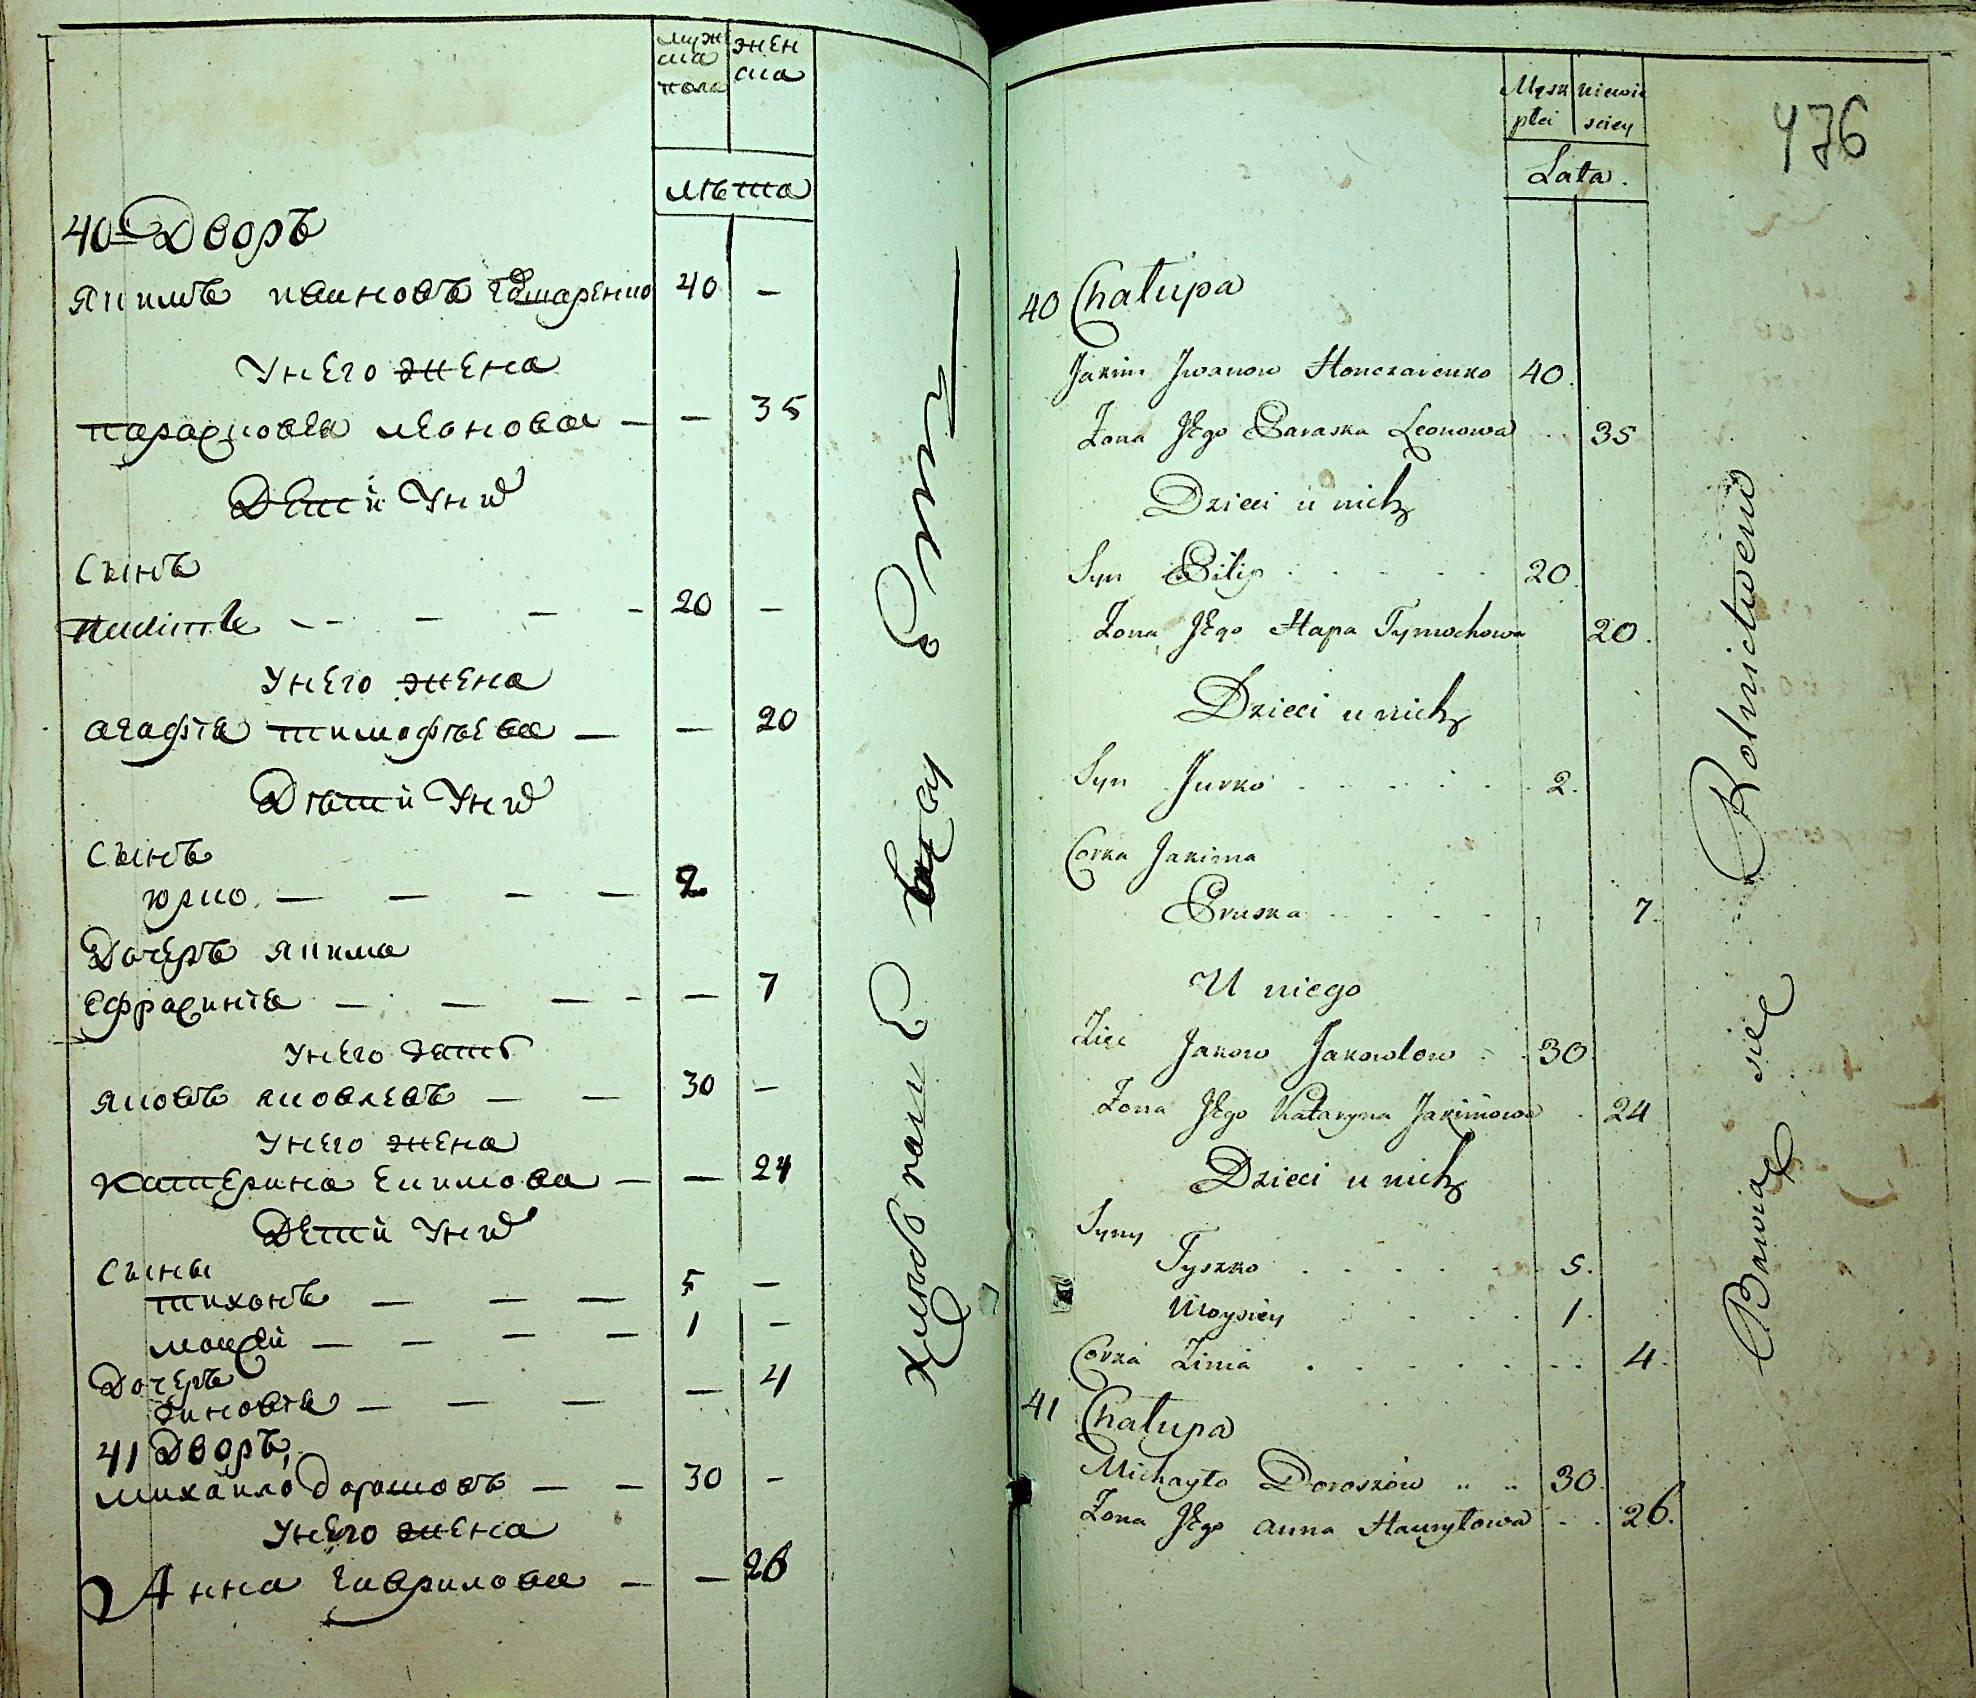 мужска пола
женска
лѣта
40 Дворъ
Якимъ Ивановъ 40 —
У него жена
Парасковея Леонова — — 35
Дети у них
Сынъ
Филипъ — — — 20 —
У него жена
Агафiя Тимофѣева — — 20
Дѣти у них
Сынъ
Юрко — — — — 2
Дочеръ Якима
Ефрасинiя — — — — — 7
У него зать
Яковъ Яковлевъ — — 30 —
У него жена
Катерина Екимова — — 24
Дети у них
Сыны
Тихонъ — — — 5 —
Моисей — — — — 1 —
Дочеръ
Зиновiя — — — — 4
41 Дворъ
Михайло Дорошовъ — — 30 —
У него жена
Анна Гаврилова — — 26
476
Męsk płci
niewieściey
Lata.
40 Chałupa
Jakim Jwanow Honczarenko 40.
Żona JEgo Paraska Leonowa . . 35
Dzieci u nich
Syn Pilip . . . . . 20.
Żona JEgo Hapa Tymochowa 20.
Dzieci u nich
Syn Jurko . . . . . . 2.
Corka Jakima
Pruska . . . . . 7.
U niego
Zięć Jakow Jakowlow . . 30
Żona JEgo Kataryna Jakimowa . 24
Dzieci u nich
Syny
Tyszko . . . . . 5.
Moysiey . . . . 1.
Corka Zinia . . . . . . . . 4.
41 Chałupa
Michayło Doroszow . . 30.
Żona JEgo Anna Hauryłowa . . 26.
Bawią się Rolnictwem